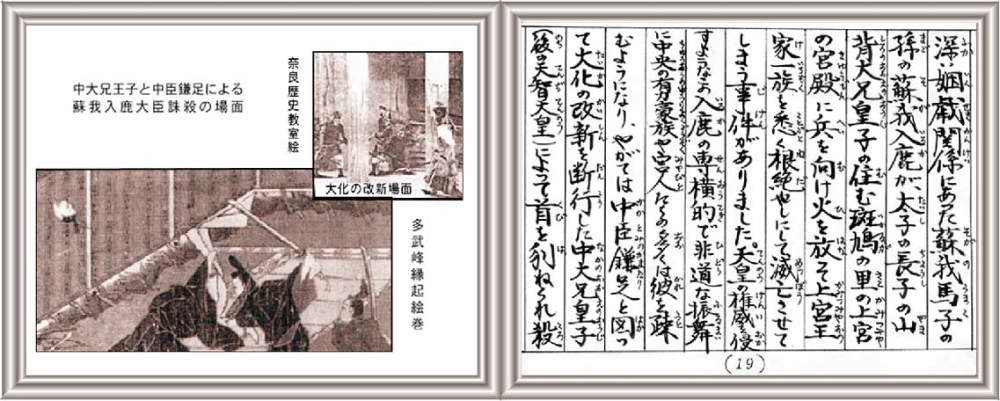 中大兄王子と中臣鎌足による
蘇我入鹿大臣誅殺の場面
奈良歴史教室絵
大化の改新場面
多武峰縁起絵巻
深い姻戚関係にあった蘇我馬子の
孫の蘇我入鹿が、太子の長子の山
背大兄皇子の住む斑鳩の里の上宮
の宮殿に兵を向け火を放って上宮王
家一族を悉く根絶やしにして滅亡させて
しまう事件がありました。天皇の権威を侵
すような入鹿の専横的で非道な振舞
に中央の有力豪族や宮人などの多くは彼を疎
むようになり、やがては中臣鎌足と図っ
て大化の改新を断行した中大兄皇子
(後の天智天皇)によって首を刎ねられ殺
(19)